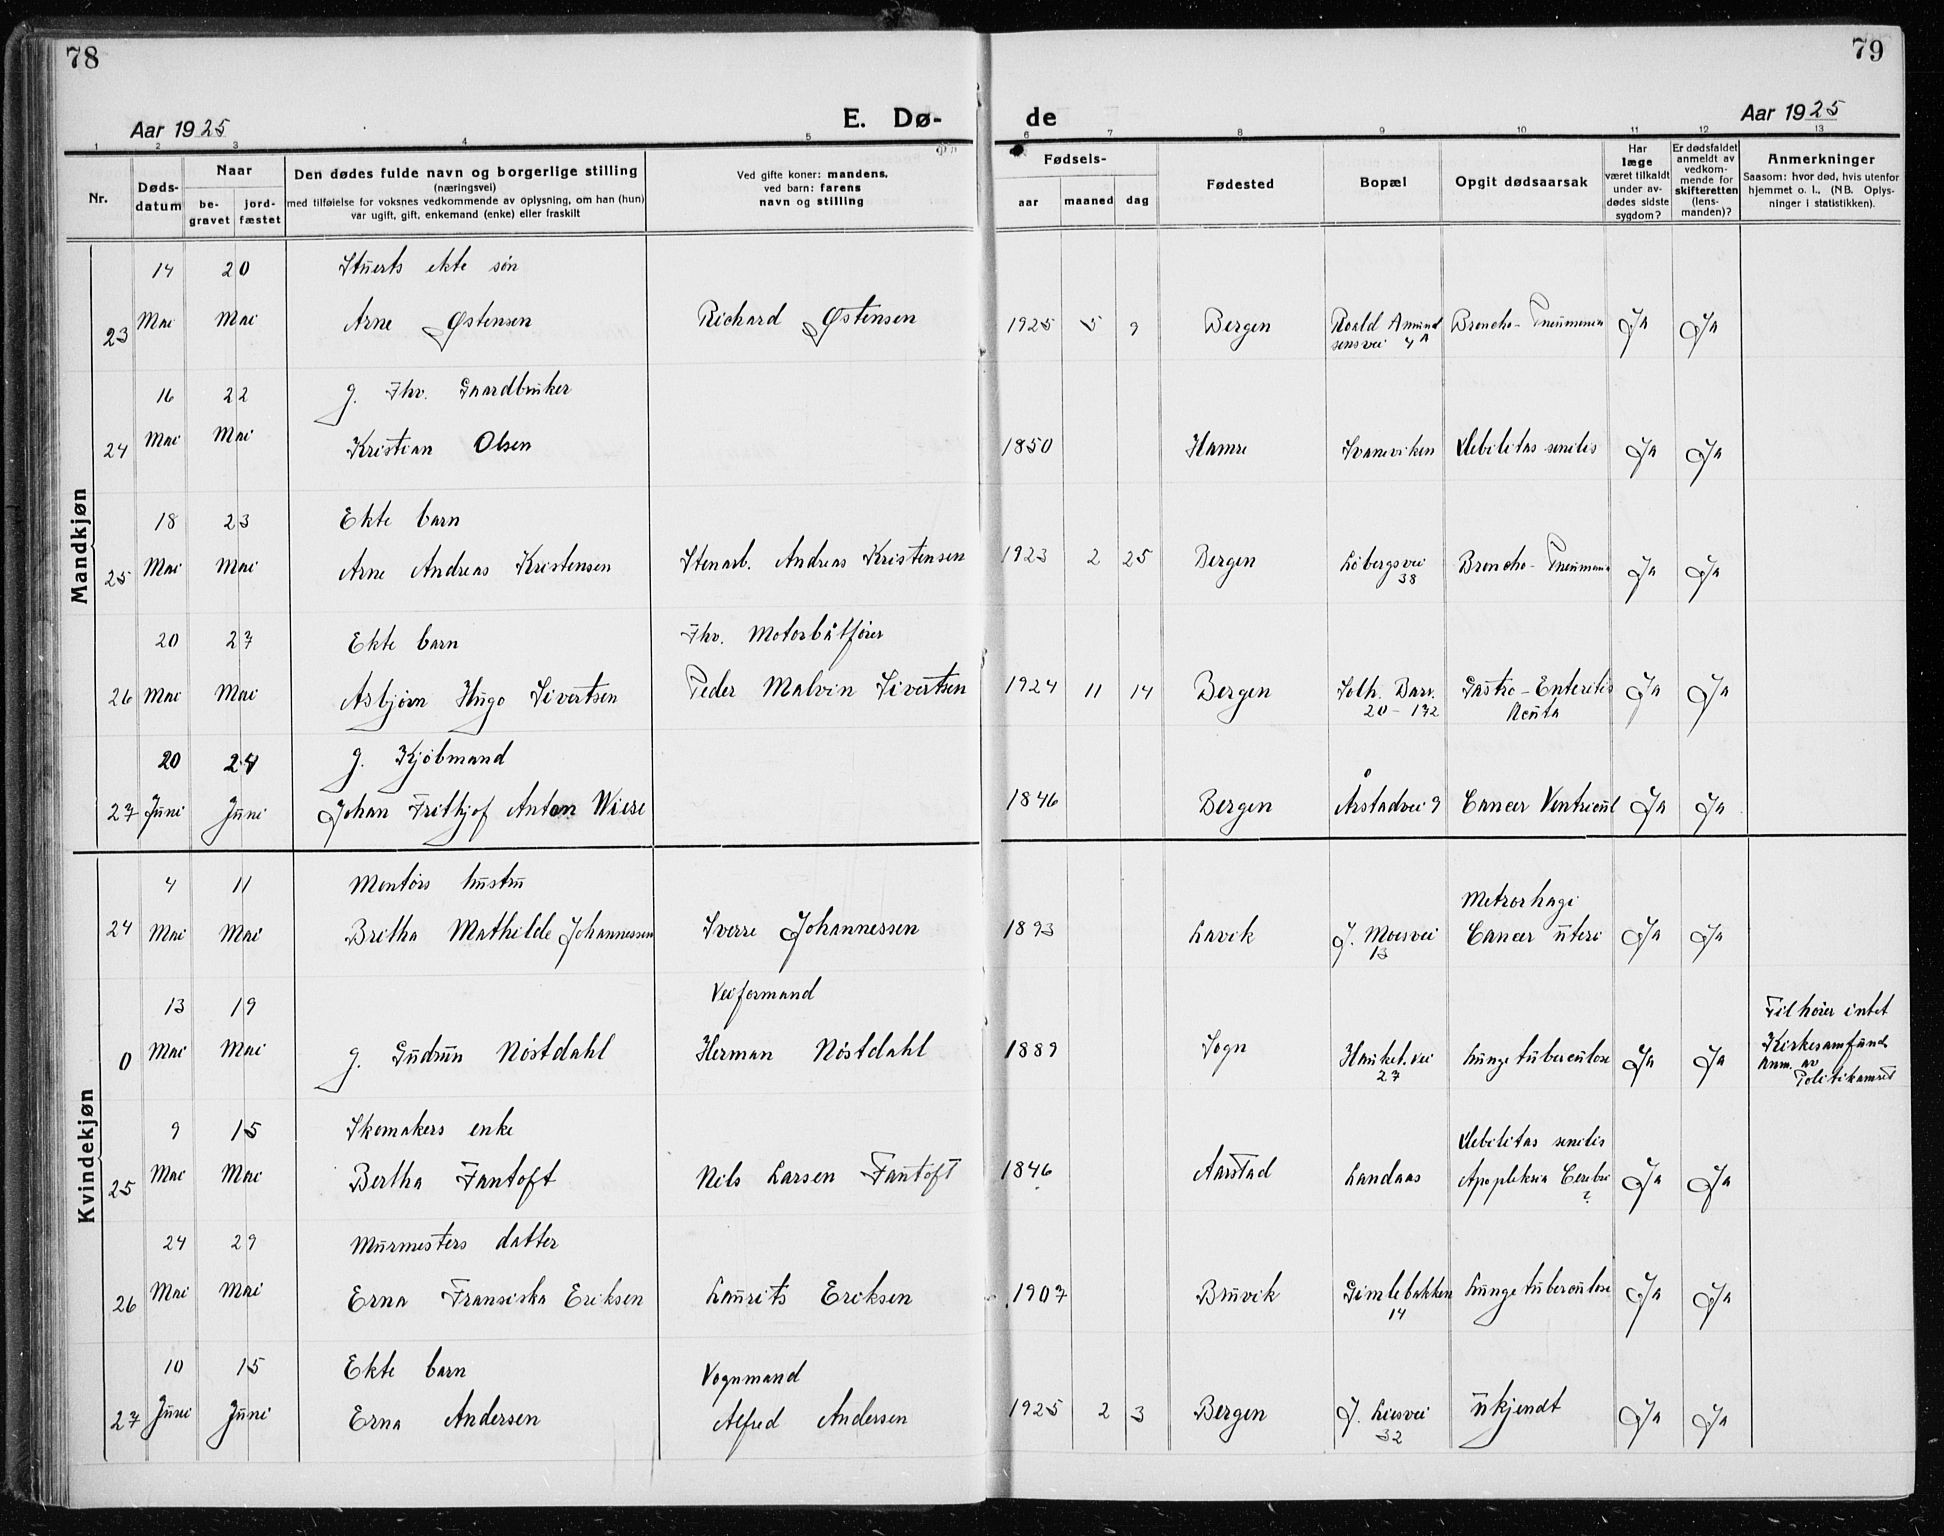 78
79
Aar 1925
E. Dø-
de
Aar 1925
1 2 3 4 5 6 7 8 9 10 11 12 13
Nr.
Døds-
datum
Naar
be-
gravet
jord-
fæstet
Den dødes fulde navn og borgerlige stilling
(næringsvei)
med tilføielse for voksnes vedkommende av oplysning, om han (hun)
var ugift, gift, enkemand (enke) eller fraskilt
Ved gifte koner: mandens,
ved barn: farens
navn og stilling
Fødsels-
aar maaned dag
Fødested
Bopæl
Opgit dødsaarsak
Har
læge
været tilkaldt
under av-
dødes sidste
sygdom?
Er dødsfaldet
anmeldt av
vedkom-
mende for
skifteretten
(lens-
manden)?
Anmerkninger
Saasom: hvor død, hvis utenfor
hjemmet o. l., (NB. Oplys-
ninger i statistikken).
Mandkjøn
14 20 Stuerts ekte søn
23 Mai Mai Arne Østensen Richard Østensen 1925 5 9 Bergen Roald Amund Broncho-Pneumonia Ja Ja
sensvei 4A
16 22 g. Fhv. Gaardbruker
24 Mai Mai Kristian Olsen 1850 Hamre Svaneviken Debilitas senilis Ja Ja
18 23 Ekte barn
25 Mai Mai Arne Andreas Kristensen Stenarb. Andreas Kristensen 1923 2 25 Bergen Løbergsvei Broncho-Pneumonia Ja Ja
38
20 27 Ekte barn Fhv. Motorbåtfører
26 Mai Mai Asbjørn Hugo Sivertsen Peder Malvin Sivertsen 1924 11 14 Bergen Solh. Barr. Gastro-Enteritis Ja Ja
20-132 Acuta
20 24 g. Kjøbmand
27 Juni Juni Johan Frithjof Anton Wiese 1846 Bergen Årstadvei 9 Cancer Ventricul Ja Ja
Kvindekjøn
4 11 Montørs hustru Metrorhagi
24 Mai Mai Britha Mathilde Johannessen Sverre Johannessen 1893 Lavik J. Moesvei Cancer uteri Ja Ja
13
13 19 Veiformand Tilhører intet
0 Mai Mai g. Gudrun Nøstdahl Herman Nøstdahl 1889 Sogn Haukel.vei Lungetuberculose Ja Ja Kirkesamfund
27 Anm. av
Politikamret
9 15 Skomakers enke Debilitas senilis
25 Mai Mai Bertha Fantoft Nils Larsen Fantoft 1846 Aarstad Landaas Apopleksia Cerebri Ja Ja
?
24 29 Murmesters datter
26 Mai Mai Erna Fransiska Eriksen Laurits Eriksen 1907 Bruvik Gimlebakken Lungetuberculose Ja Ja
14
10 15 Ekte barn Vognmand
27 Juni Juni Erna Andersen Alfred Andersen 1925 2 3 Bergen J. Liesvei Ukjendt Ja Ja
32